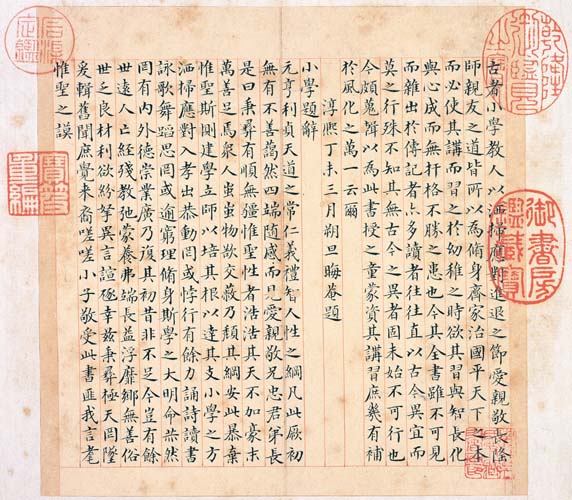 乾隆御覽之寶
古者小學教人以洒掃應對進退之節愛親敬長隆
師親友之道皆所以為脩身齊家治國平天下之本
而必使其講而習之於幼稚之時欲其習與知長化
與心成而無扞格不勝之患也今其全書雖不可見
而雜出於傳記者亦多讀者往往直以古今異宜而
莫之行殊不知其無古今之異者固未始不可行也
今頗蒐輯以為此書授之童蒙資其講習庶幾有補
於風化之萬一云爾
淳熙丁未三月朔旦晦菴題
小學題辭
元亨利貞天道之常仁義禮智人性之綱凡此厥初
無有不善藹然四端隨感而見愛親敬兄忠君弟長
是曰秉彝有順無彊惟聖性者浩浩其天不加豪末
萬善足焉眾人蚩蚩物欲交蔽乃頹其綱安此暴棄
惟聖斯惻建學立師以培其根以達其支小學之方
洒掃應對入孝出恭動罔或悖行有餘力誦詩讀書
詠歌舞蹈思罔或逾窮理脩身斯學之大明命赫然
罔有內外德崇業廣乃復其初昔非不足今豈有餘
世遠人亡經殘教弛蒙養弗端長益浮靡鄉無善俗
世乏良材利欲紛拏異言諠豗幸茲秉彝極天罔墜
爰輯舊聞庶覺來裔嗟嗟小子敬受此書匪我言耄
惟聖之謨
御書房鑑藏寶
石渠定鑑
寶笈重編